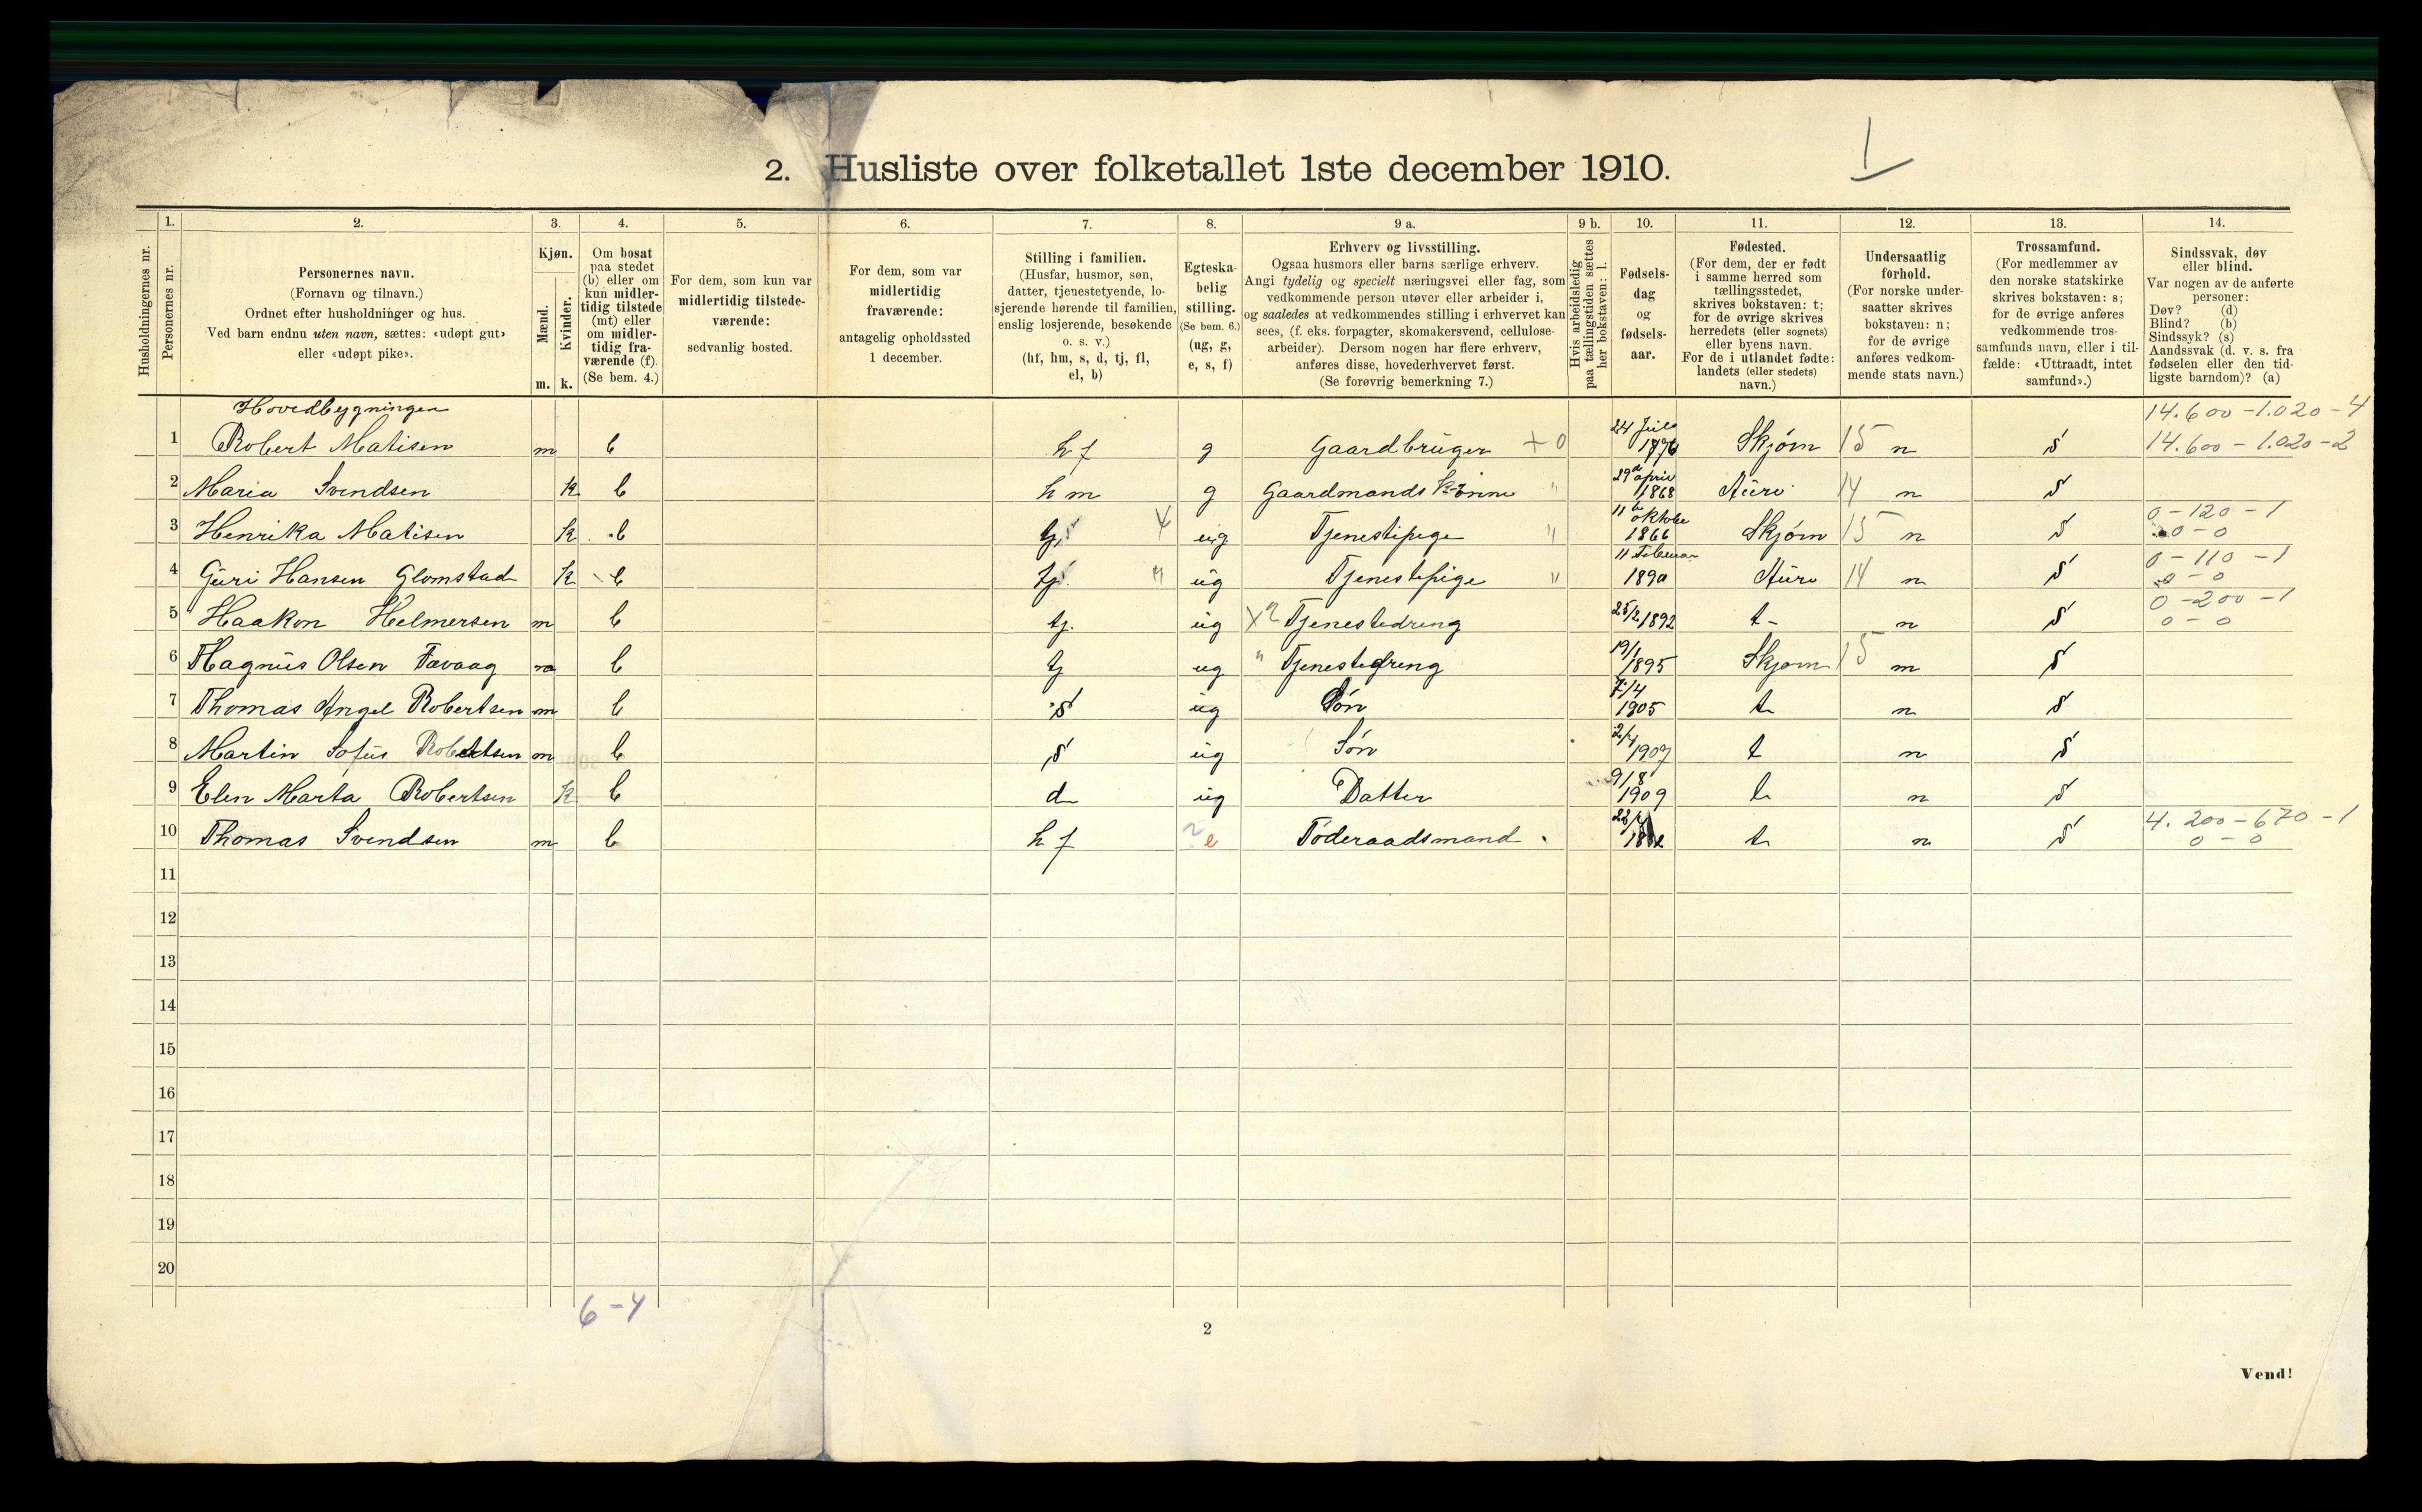 2. Husliste over folketallet 1ste december 1910.
1
Husholdningernes nr.
1.
Personernes nr.
2.
Personernes navn.
(Fornavn og tilnavn.)
Ordnet efter husholdninger og hus.
Ved barn endnu uten navn, sættes: «udøpt gut»
eller «udøpt pike».
3.
Kjøn.
Mænd.
Kvinder.
m. k.
4.
Om bosat
paa stedet
(b) eller om
kun midler-
tidig tilstede
(mt) eller
om midler-
tidig fra-
værende (f).
(Se bem. 4.)
5.
For dem, som kun var
midlertidig tilstede-
værende:
sedvanlig bosted.
6.
For dem, som var
midlertidig
fraværende:
antagelig opholdssted
1 december.
7.
Stilling i familien.
(Husfar, husmor, søn,
datter, tjenestetyende, lo-
sjerende hørende til familien,
enslig losjerende, besøkende
o. s. v.)
(hf, hm, s, d, tj, fl,
el, b)
8.
Egteska-
belig
stilling.
(Se bem. 6.)
(ug, g,
e, s, f)
9 a.
Erhverv og livsstilling.
Ogsaa husmors eller barns særlige erhverv.
Angi tydelig og specielt næringsvei eller fag, som
vedkommende person utøver eller arbeider i,
og saaledes at vedkommendes stilling i erhvervet kan
sees, (f. eks. forpagter, skomakersvend, cellulose-
arbeider). Dersom nogen har flere erhverv,
anføres disse, hovederhvervet først.
(Se forøvrig bemerkning 7.)
9 b.
Hvis arbeidsledig
paa tællingstiden sættes
her bokstaven: l.
10.
Fødsels-
dag
og
fødsels-
aar.
11.
Fødested.
(For dem, der er født
i samme herred som
tællingsstedet,
skrives bokstaven: t;
for de øvrige skrives
herredets (eller sognets)
eller byens navn.
For de i utlandet fødte:
landets (eller stedets)
navn.)
12.
Undersaatlig
forhold.
(For norske under-
saatter skrives
bokstaven: n;
for de øvrige
anføres vedkom-
mende stats navn.)
13.
Trossamfund.
(For medlemmer av
den norske statskirke
skrives bokstaven: s;
for de øvrige anføres
vedkommende tros-
samfunds navn, eller i til-
fælde: «Uttraadt, intet
samfund».)
14.
Sindssvak, døv
eller blind.
Var nogen av de anførte
personer:
Døv? (d)
Blind? (b)
Sindssyk? (s)
Aandssvak (d. v. s. fra
fødselen eller den tid-
ligste barndom)? (a)
Hovedbygningen 14.600 - 1.020 - 4
1 Robert Matisen m b hf g Gaardbruger + 0 24 Juli 1876 Skjørn 15 n s 14.600 - 1.020 - 2
2 Maria Svendsen k b hm g Gaardmands kone " 29 april 1868 Aure 14 n s
3 Henrika Matisen k b tj ug Tjenestepige " 11 oktobe 1866 Skjørn 15 n s 0 - 120 - 1
0 - 0
4 Guri Hansen Glomstad k b tj " ug Tjenestepige " 11 Februar 1890 Aure 14 n s 0 - 110 - 1
0 - 0
5 Haakon Helmersen m b tj. ug x2 Tjenestedreng 25/2 1892 t - n s 0 - 200 - 1
0 - 0
6 Magnus Olsen Favaag m b tj ug " Tjenestedreng 19/1 1895 Skjørn 15 n s
7 Thomas Angel Robertsen m b s ug Søn 7/4 1905 t n s
8 Martin Sofus Robertsen m b s ug Søn 2/4 1907 t n s
9 Elen Marta Robertsen k b d ug Datter 9/8 1909 t n s
10 Thomas Svendsen m b hf e Føderaadsmand t n s 4.200 - 670 - 1
0 - 0
11
12
13
14
15
16
17
18
19
20
6 - 4
2
Vend!